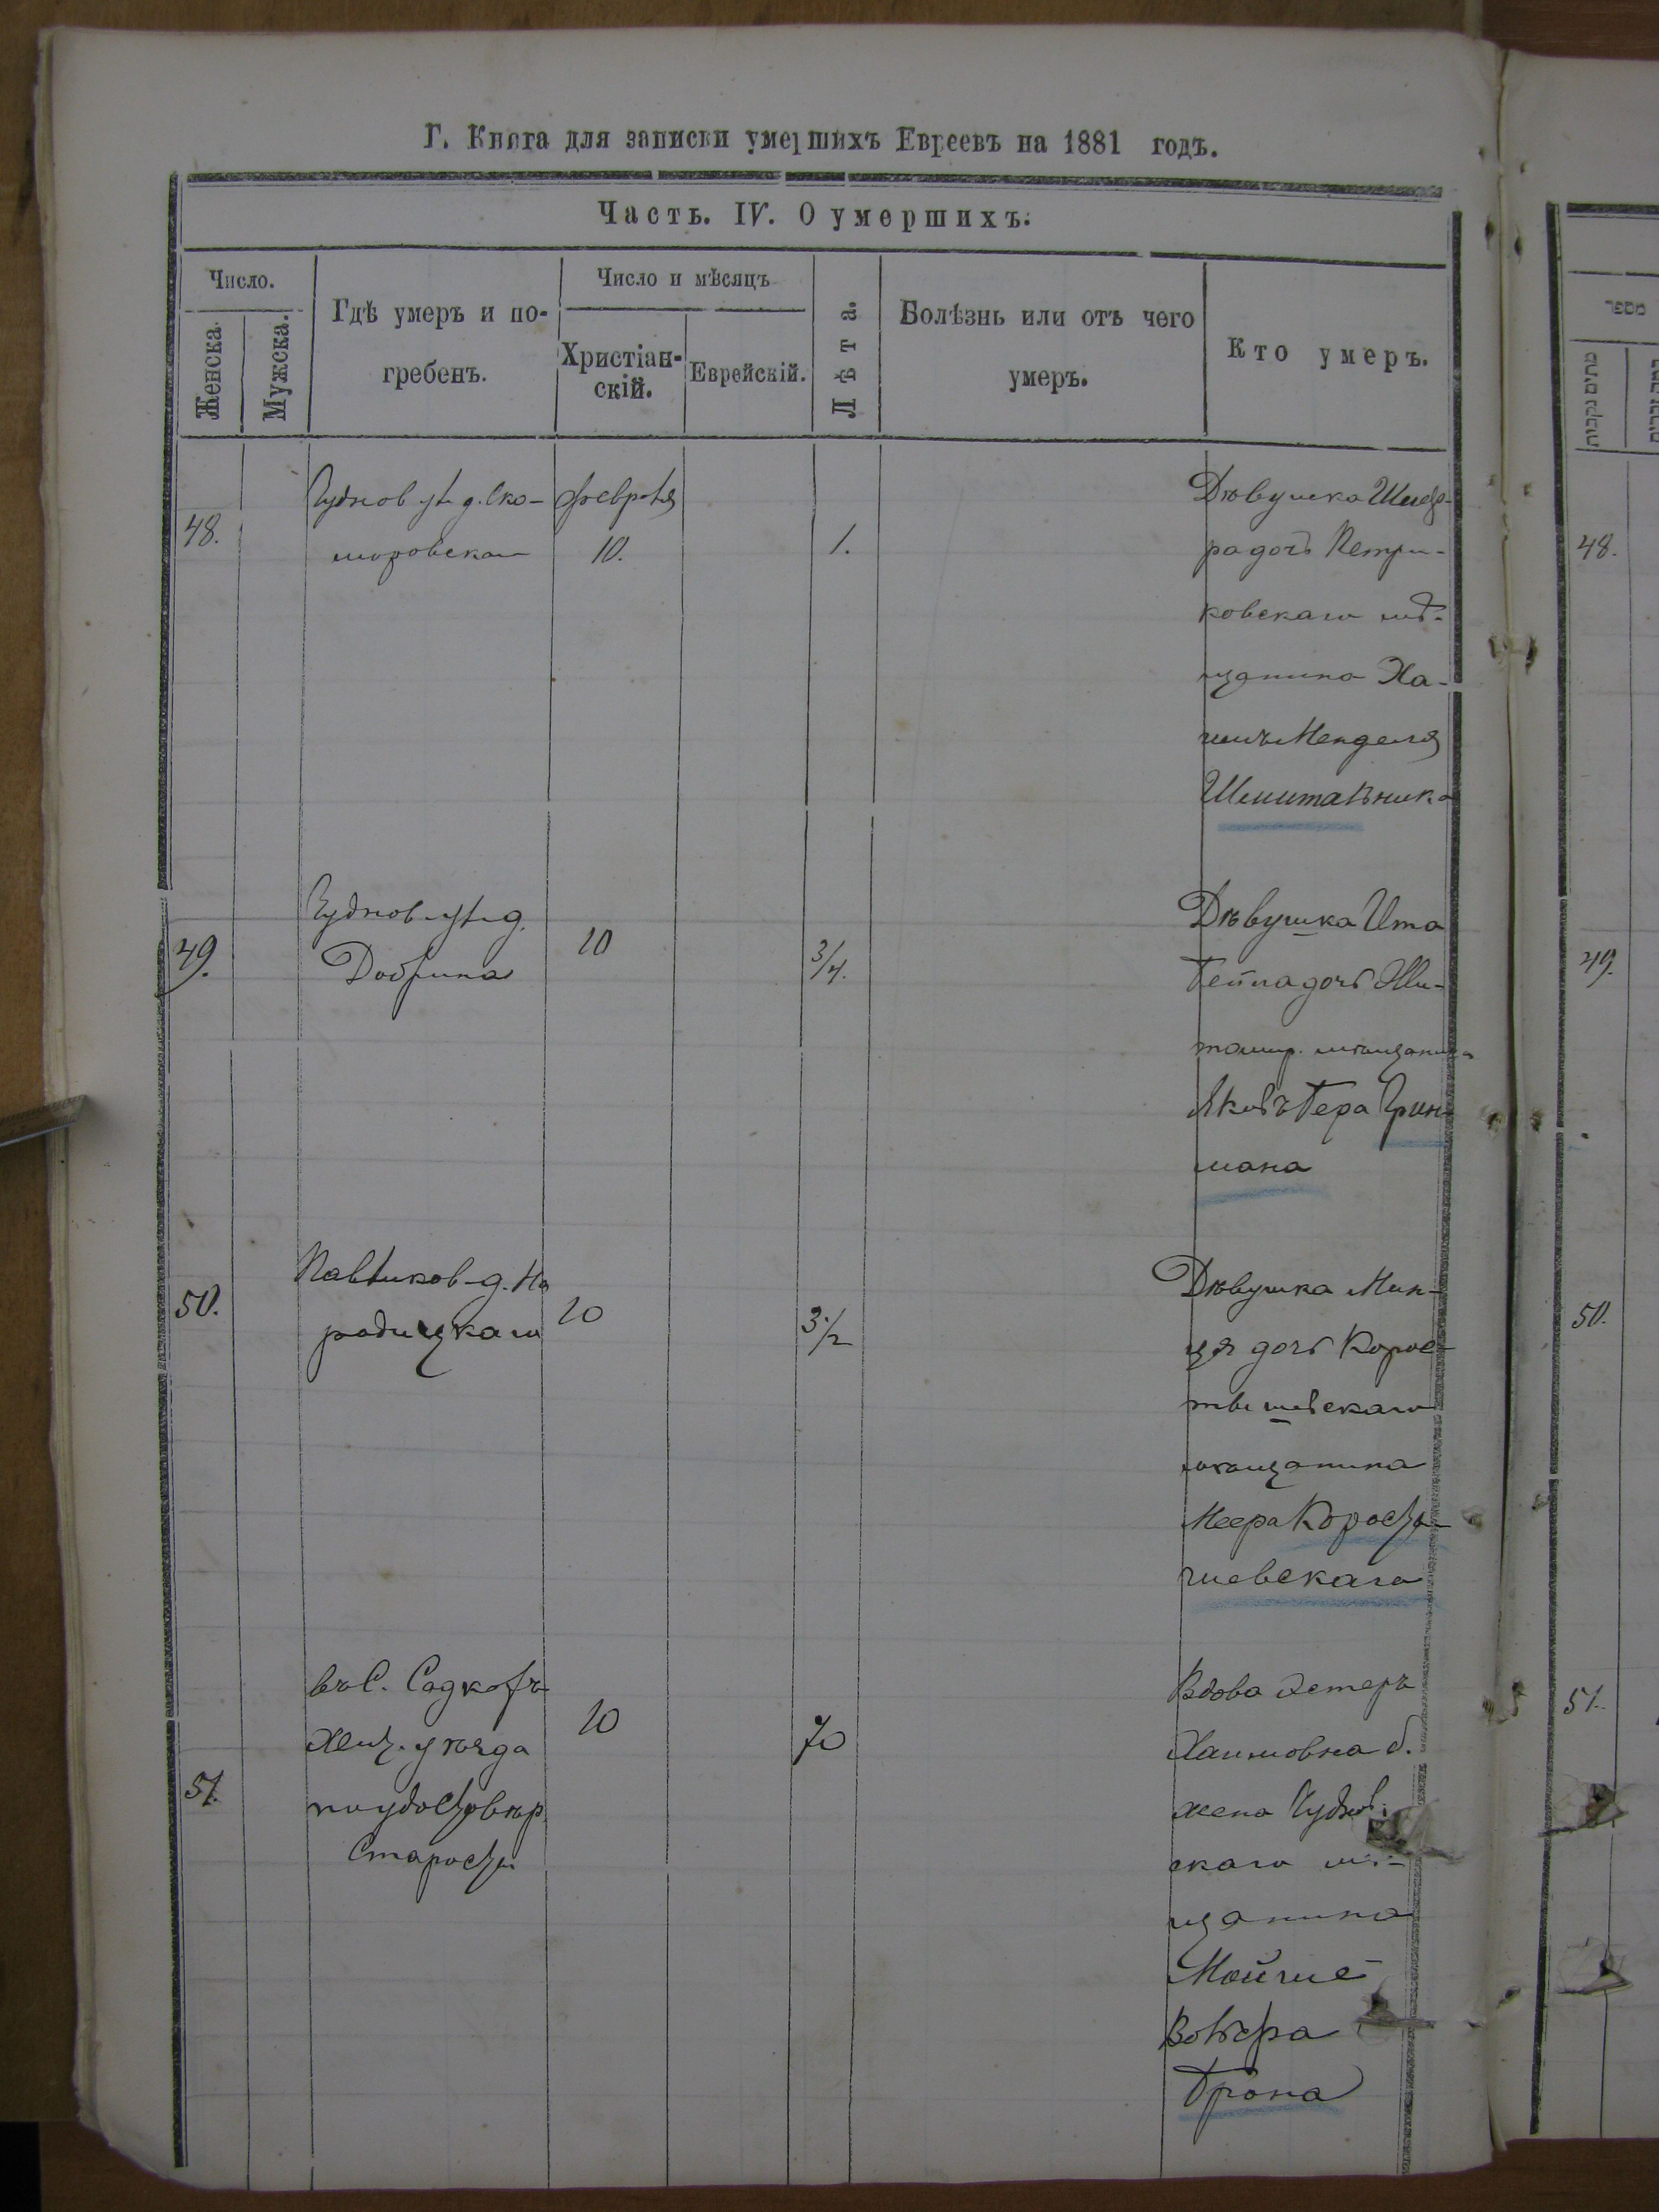 Г. Книга для записки умершихъ Евреевъ на 1881 годъ.
Часть. IV. О умершихъ.
Число.
Женска.
Мужска.
Гдѣ умеръ и по-
гребенъ.
Число и мѣсяцъ
Христіан-
скій.
Еврейскій.
Лѣта.
Болѣзнь или отъ чего
умеръ.
Кто умеръ.
48.
Чуднов ул д. Ско-
моровскаго
февраля
10.
1.
Дѣвушка
ра дочь Петри-
ковскаго мѣ-
щанина Ха-
имъ Менделя
49.
Чуднов ул д.
Добрина
10
3/4.
Дѣвушка Ита
Бейла дочь Жи-
томир. мѣщанина
Яковъ Бера Грин-
мана
50.
Павликов. д. На
родицкаго
10
3 1/2
Дѣвушка Мин-
ця дочь Корос-
тышевскаго
мѣщанина
Меера Корости-
шевскаго
51.
въ С. Садковѣ
Жит. уѣзда
по удостовѣр.
Старосты
10
70
Вдова Эстеръ
Хаимовна б.
жена Чуднов-
скаго мѣ-
щанина
Мойше
Вольфа
Трона
מספר
מתים נקבות
מתים זכרים
48.
49.
50.
51.